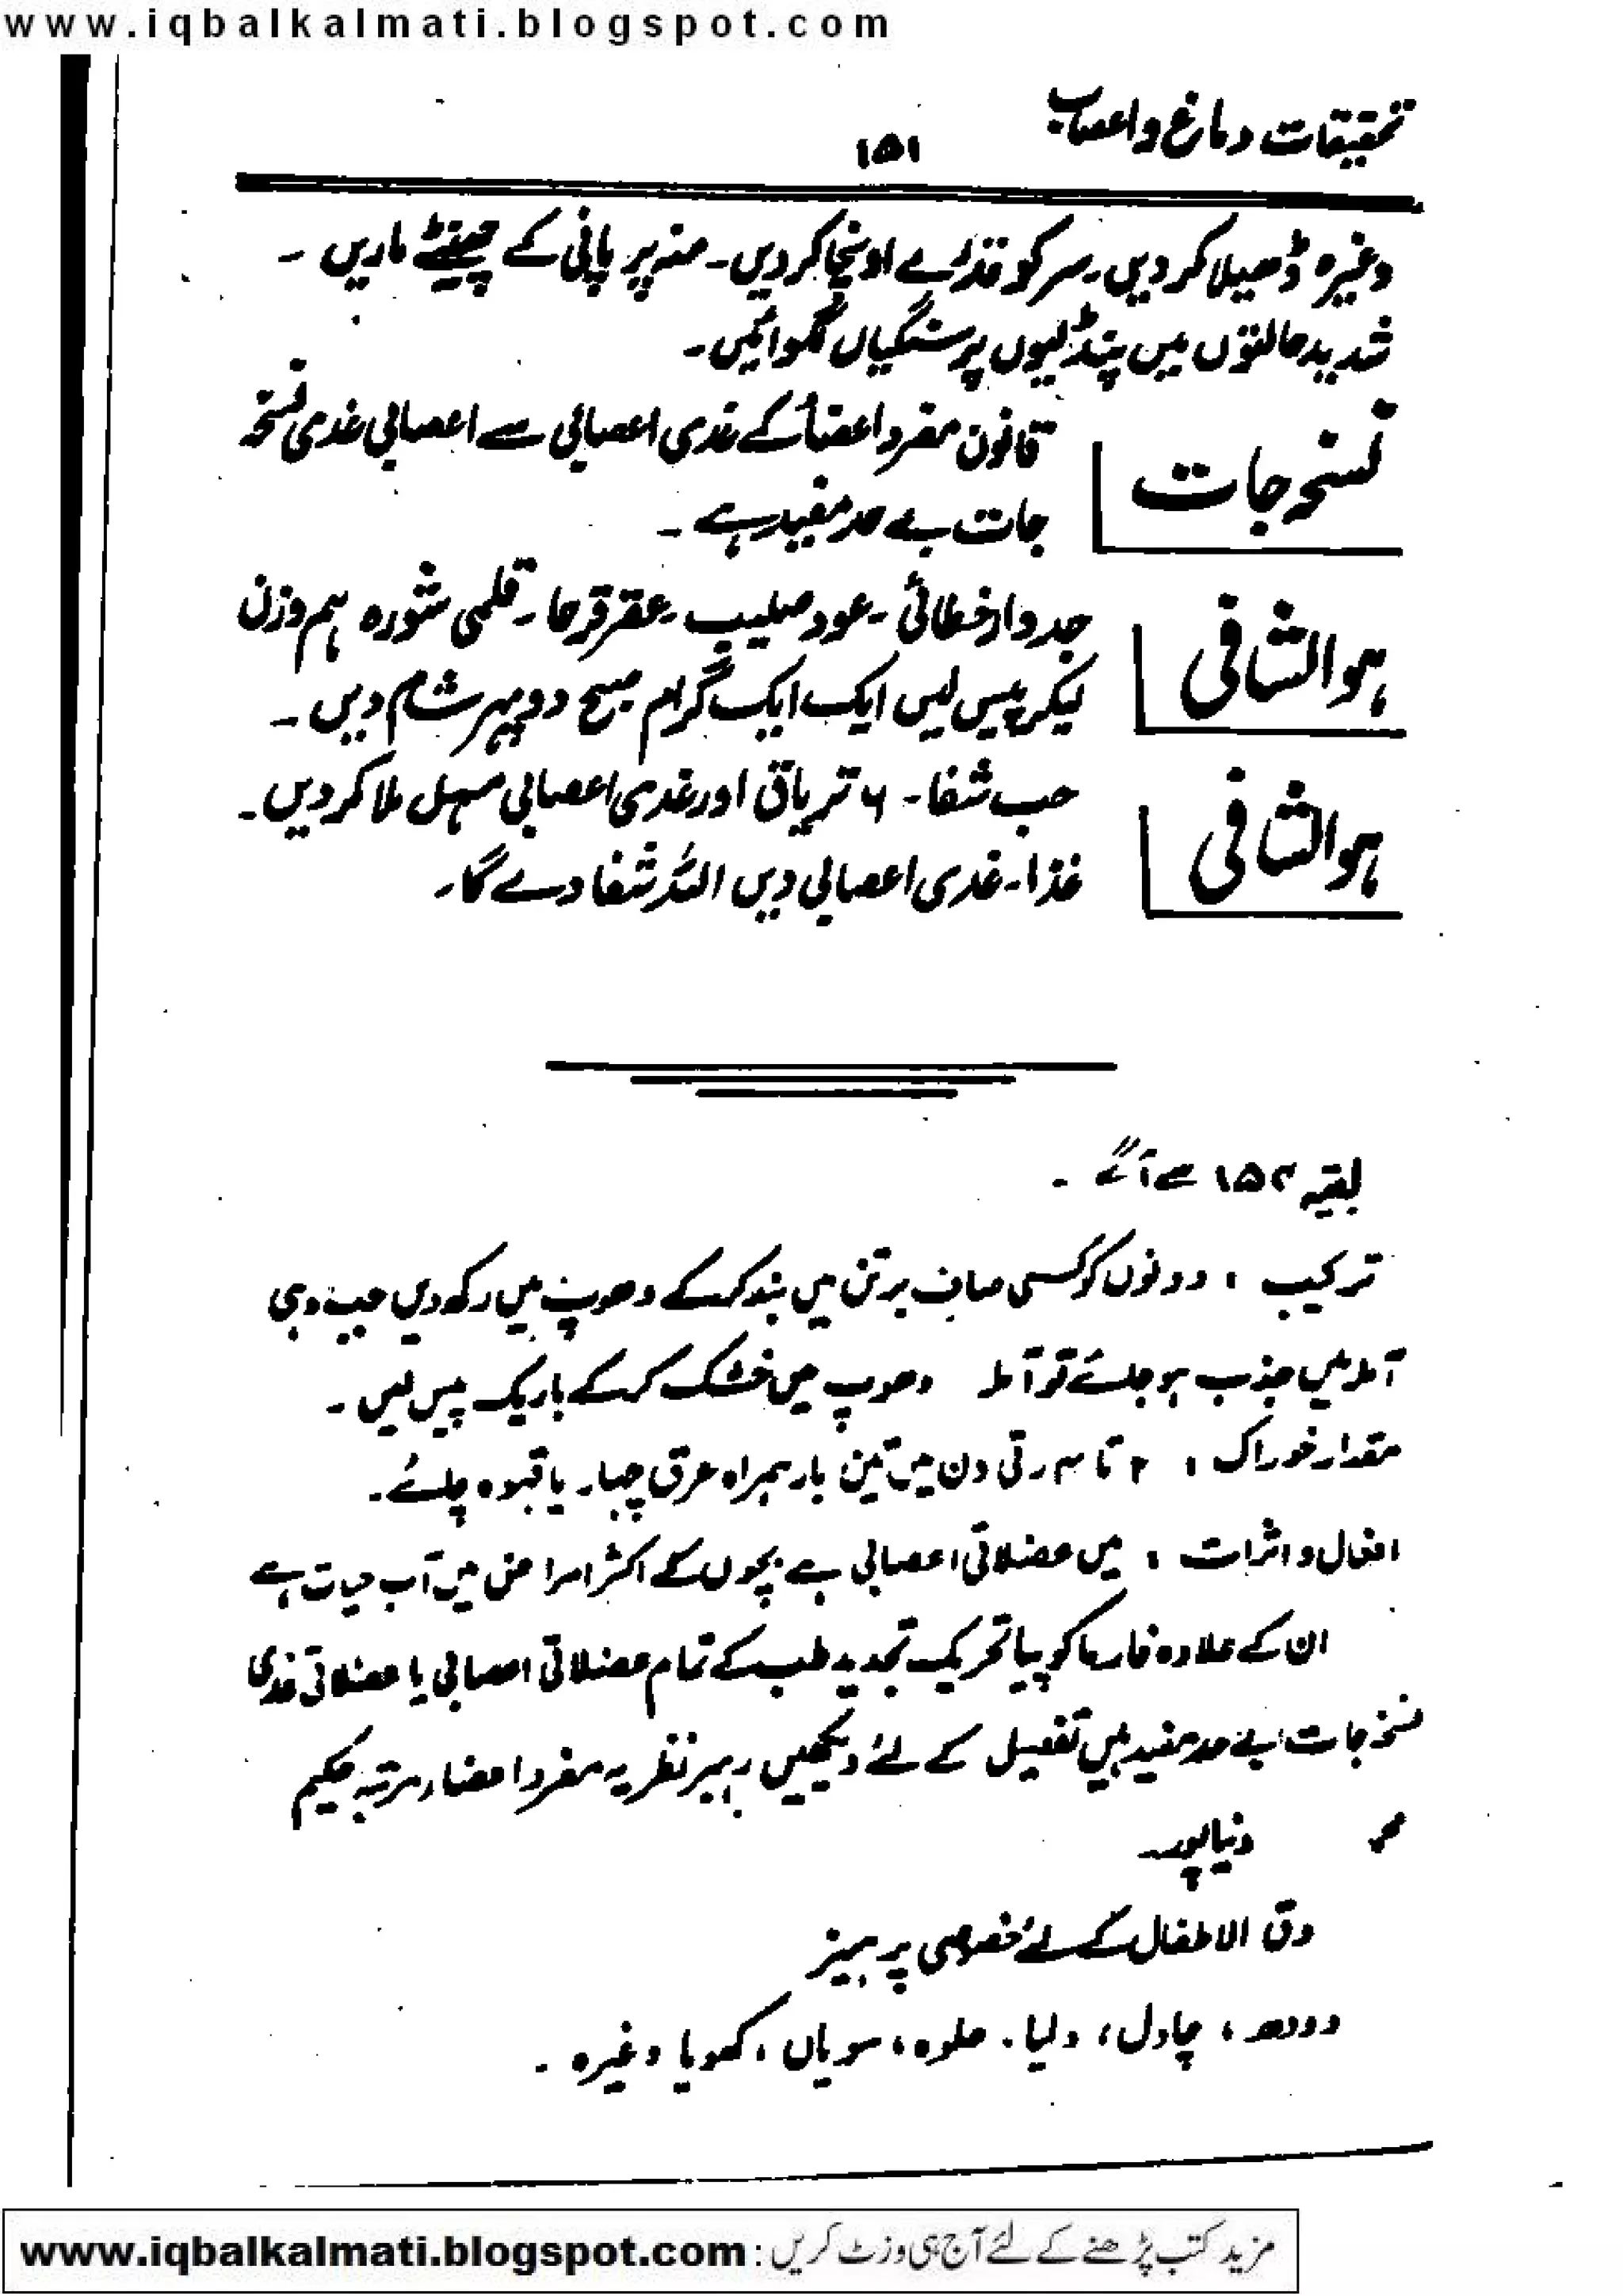 www.iqbalkalmati.blogspot.com
تحقیقات دماغ و اعصاب
۱۵۱
وغیرہ ڈھیلا کر دیں۔ سر کو قدرے اونچا کر دیں۔ منہ پر پانی کے چھینٹے ماریں ۔
شدید حالتوں میں پنڈلیوں پر سنگیاں لگوائیں۔
نسخہ جات
قانون مفرد اعضأ کے غدی اعصابی سے اعصابی غدی نسخہ
جات بے حد مفید ہے ۔
ہوالشافی
جدوار خطائی ۔ عود صلیب ۔ عقر قرحا ۔ قلمی شورہ ہم وزن
لیکر پیس لیں ایک ایک گرام صبح دوپہر شام دیں ۔
ہوالشافی
حب شفا ۔ ۶ تریاق اور غدی اعصابی مسہل ملا کر دیں ۔
غذا ۔ غدی اعصابی دیں اللہ شفا دے گا ۔
بقیہ ۱۵۲ سے آگے ۔
ترکیب ، دونوں کو کسی صاف برتن میں بند کر کے دھوپ میں رکھ دیں جب دہی
آملہ میں جذب ہو جائے تو آملہ دھوپ میں خشک کر کے باریک پیس لیں ۔
مقدار خوراک ، ۲ تا ۴ رتی دن میں تین بار ہمراہ عرق چہار یا قہوہ چائے ۔
افعال و اثرات ، میں عضلاتی اعصابی ہے بچوں کے اکثر امراض میں آب حیات ہے
ان کے علاوہ فارماکوپیا تحریک تجدید طب کے تمام عضلاتی اعصابی یا عضلاتی غدی
نسخہ جات بے حد مفید ہیں تفصیل کے لئے دیکھیں رہبر نظریہ مفرد اعضاء مرتبہ حکیم
دنیاپور
دق الاطفال کے لئے خصوصی پرہیز
دودھ ، چاول ، دلیا . حلوہ ، سویاں ، کھویا وغیرہ ۔
مزید کتب پڑھنے کے لئے آج ہی وزٹ کریں : www.iqbalkalmati.blogspot.com